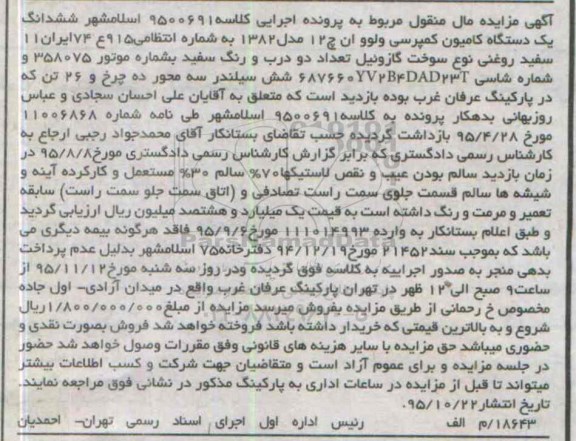 آگهی مزایده مال منقول مربوط به پرونده اجرایی کلاسه۹۵۰۰۶۹۱ اسلامشهر ششدانگ
یک دستگاه کامیون کمپرسی ولوو ان چ۱۲ مدل۱۳۸۲ به شماره انتظامی۹۱۵ع ۷۴ایران۱۱
سفید روغنی نوع سوخت گازوئیل تعداد دو درب و رنگ سفید بشماره موتور ۳۵۸۰۷۵ و
شماره شاسی YV۲B۴DAD۲۳T ۶۸۷۶۶۰ شش سیلندر سه محور ده چرخ و ۲۶ تن که
در پارکینگ عرفان غرب بوده بازدید است که متعلق به آقایان علی احسان سجادی و عباس
روزبهانی بدهکار پرونده به کلاسه۹۵۰۰۶۹۱ اسلامشهر طی نامه شماره ۱۱۰۰۶۸۶۸
مورخ ۹۵/۴/۲۸ بازداشت گردیده حسب تقاضای بستانکار آقای محمدجواد رجبی ارجاع به
کارشناس رسمی دادگستری که برابر گزارش کارشناس رسمی دادگستری مورخ۹۵/۸/۸ در
زمان بازدید سالم بودن عیب و نقص لاستیکها۷۰% سالم ۳۰% مستعمل و کارکرده آینه و
شیشه ها سالم قسمت جلوی سمت راست تصادفی و (اتاق سمت جلو سمت راست) سابقه
تعمیر و مرمت و رنگ داشته است به قیمت یک میلیارد و هشتصد میلیون ریال ارزیابی گردید
و طبق اعلام بستانکار به وارده ۱۱۱۰۱۴۹۹۳ مورخ۹۵/۹/۶ فاقد هرگونه بیمه دیگری می
باشد که بموجب سند۲۱۴۵۲ مورخ۹۴/۱۲/۱۹ دفترخانه۷۵ اسلامشهر بدلیل عدم پرداخت
بدهی منجر به صدور اجراییه به کلاسه فوق گردیده ودر روز سه شنبه مورخ۹۵/۱۱/۱۲ از
ساعت۹ صبح الی ۱۲ ظهر در تهران پارکینگ عرفان غرب واقع در میدان آزادی- اول جاده
مخصوص خ رحمانی از طریق مزایده بفروش میرسد مزایده از مبلغ۱/۸۰۰/۰۰۰/۰۰۰ریال
شروع و به بالاترین قیمتی که خریدار داشته باشد فروخته خواهد شد فروش بصورت نقدی و
حضوری میباشد حق مزایده با سایر هزینه های قانونی وفق مقررات وصول خواهد شد حضور
در جلسه مزایده و برای عموم آزاد است و متقاضیان جهت شرکت و کسب اطلاعات بیشتر
میتواند تا قبل از مزایده در ساعات اداری به پارکینگ مذکور در نشانی فوق مراجعه نمایند.
تاریخ انتشار۹۵/۱۰/۲۲.
۱۸۶۴۳/م الف رئیس اداره اول اجرای اسناد رسمی تهران- احمدیان